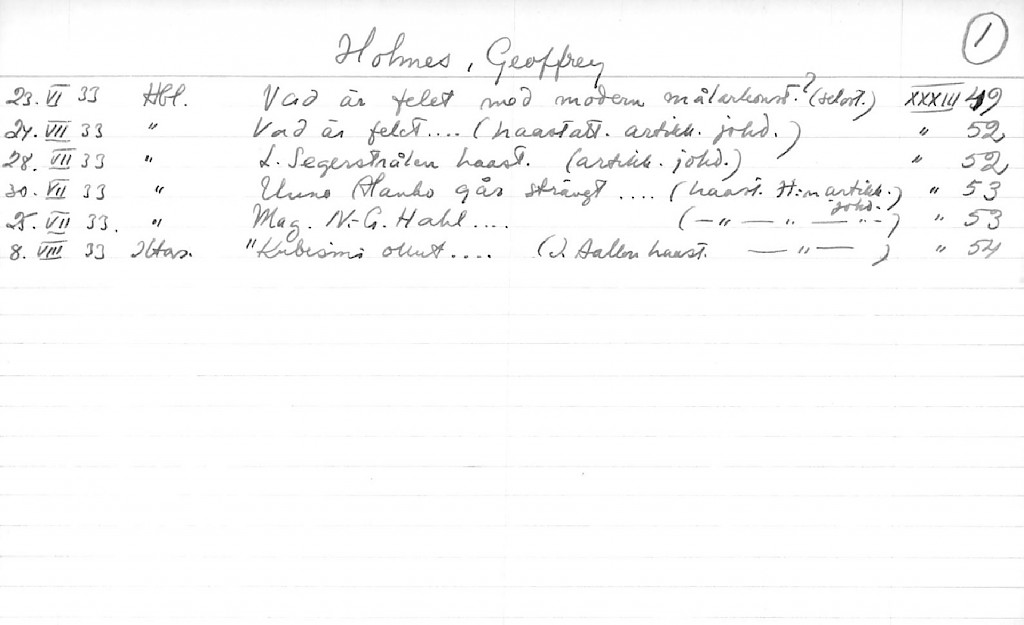 1
Holmes, Geoffrey
23. VI 33 Hbl. Vad är felet med modern målarkonst.? (selost.) XXXIII 49
24. VII 33 " Vad är felet.... (haastatt. artikk. johd.) " 52
28. VII 33 " L. Segerstrålen haast. (artikk. johd.) " 52
30. VII 33 " Uuno Alanko går strängt .... (haast. H:n artikk. johd.) " 53
25. VII 33. " Mag. N.-G. Hahl .... (— " — " — " -) " 53
8. VIII 33 Iltas. "Kubismi ollut .... (J. Aallon haast. — " — ) " 54